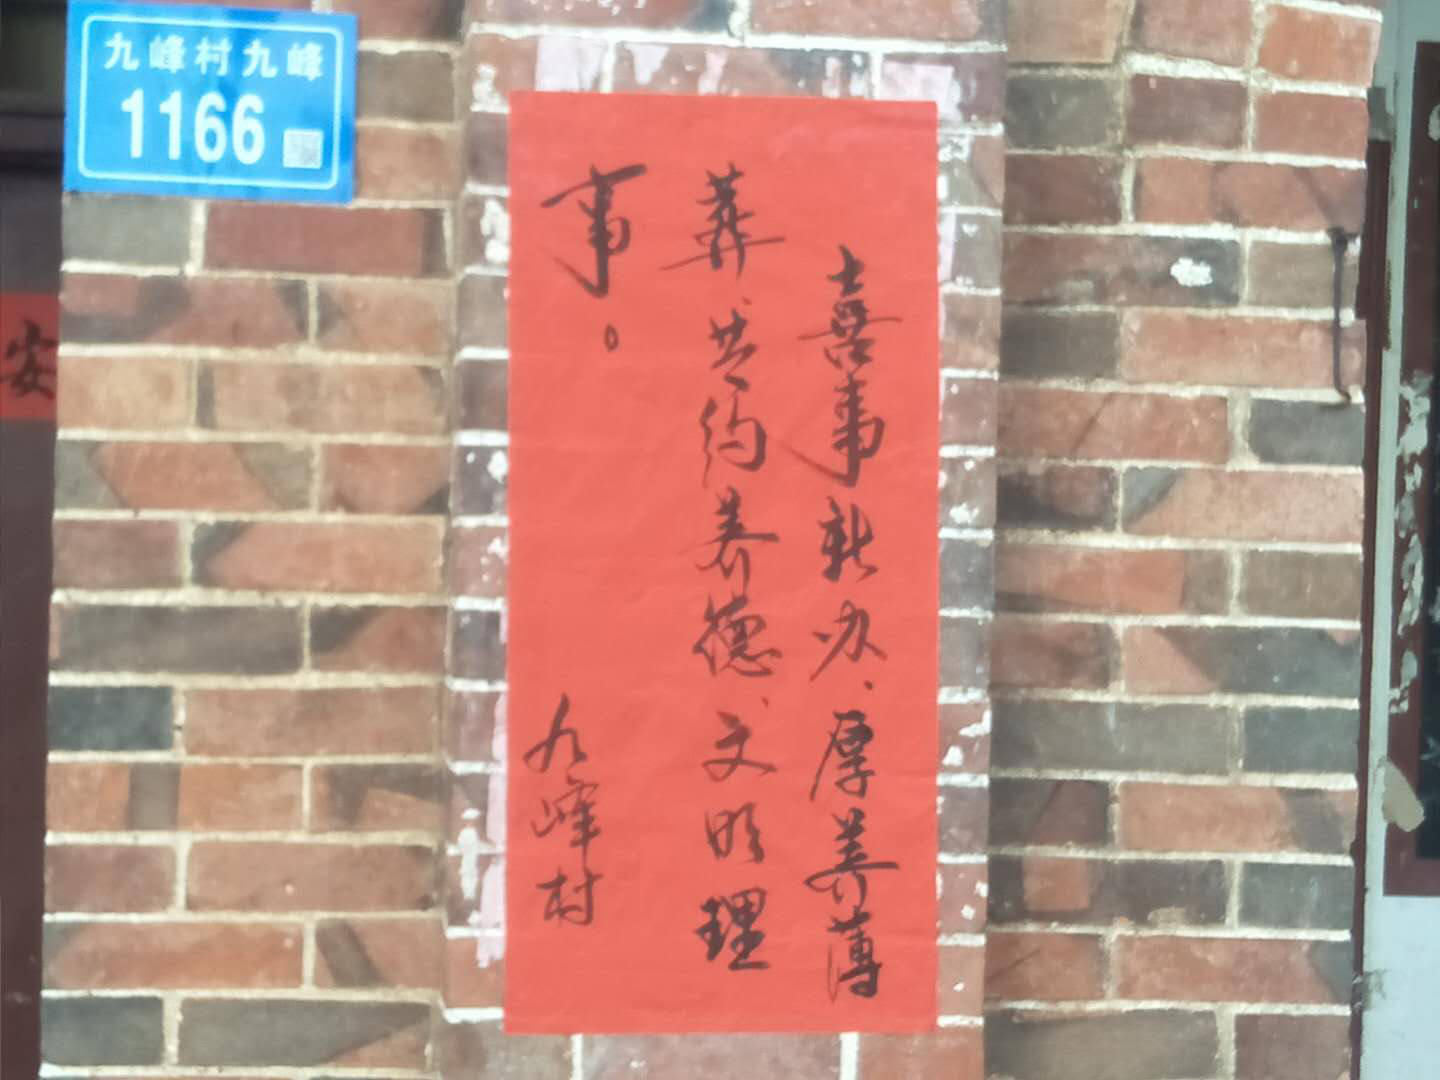 九峰村九峰
1166
安
喜事新办、厚养薄
葬、共约养德、文明理
事。
九峰村